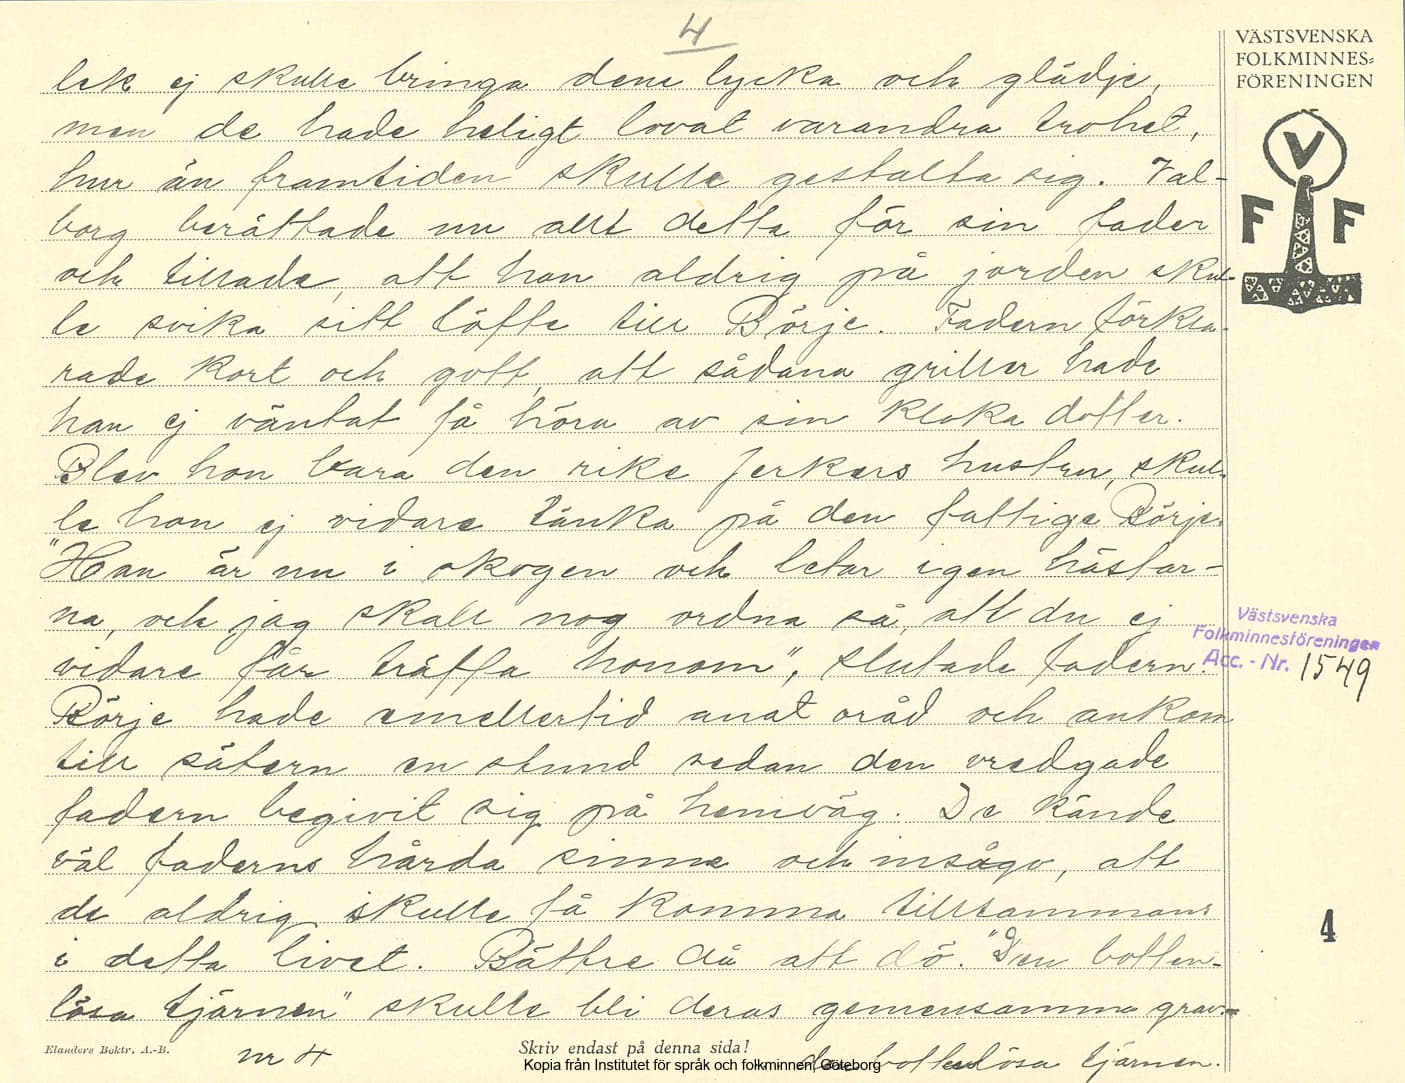 4
lek ej skulle bringa dem lycka och glädje,
men de hade heligt lovat varandra trohet,
hur än framtiden skulle gestalta sig. Val-
borg berättade nu allt detta för sin fader
och tillade, att hon aldrig på jorden skul-
le svika sitt löfte till Börje. Fadern förkla-
rade kort och gott, att sådana griller hade
han ej väntat få höra av sin kloka dotter.
Blev hon bara den rike Jerkers hustru, skul-
le hon ej vidare tänka på den fattige Börje.
"Han är nu i skogen och letar igen hästar-
na, och jag skall nog ordna så, att du ej
vidare får träffa honom", slutade fadern.
Börje hade emellertid anat oråd och ankom
till sätern en stund sedan den vredgade
fadern begivit sig på hemväg. De kände
väl faderns hårda sinne och insågo, att
de aldrig skulle få komma tillsammans
i detta livet. Bättre då att dö. "Den botten-
lösa tjärnen" skulle bli deras gemensamma grav.
Elanders Boktr. A.-B.
nr 4
Skriv endast på denna sida!
bottenlösa tjärnen.
Kopia från Institutet för språk och folkminnen, Göteborg
VÄSTSVENSKA
FOLKMINNES-
FÖRENINGEN
V
F F
Västsvenska
Folkminnesföreningen
Acc. - Nr. 1549
4